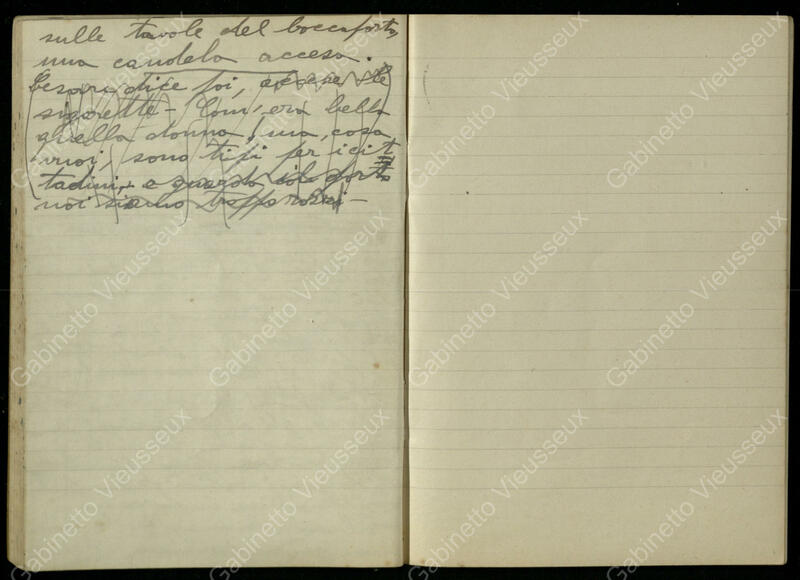 sulle tavole del boccaporto,
una candela accesa.
Cesari dice poi, accese le
sigarette – Com'era bella
quella donna, ma cosa
vuoi, sono tipi per i cit
tadini, e guardò il
noi siamo troppo rozzi –
Gabinetto Vieusseux